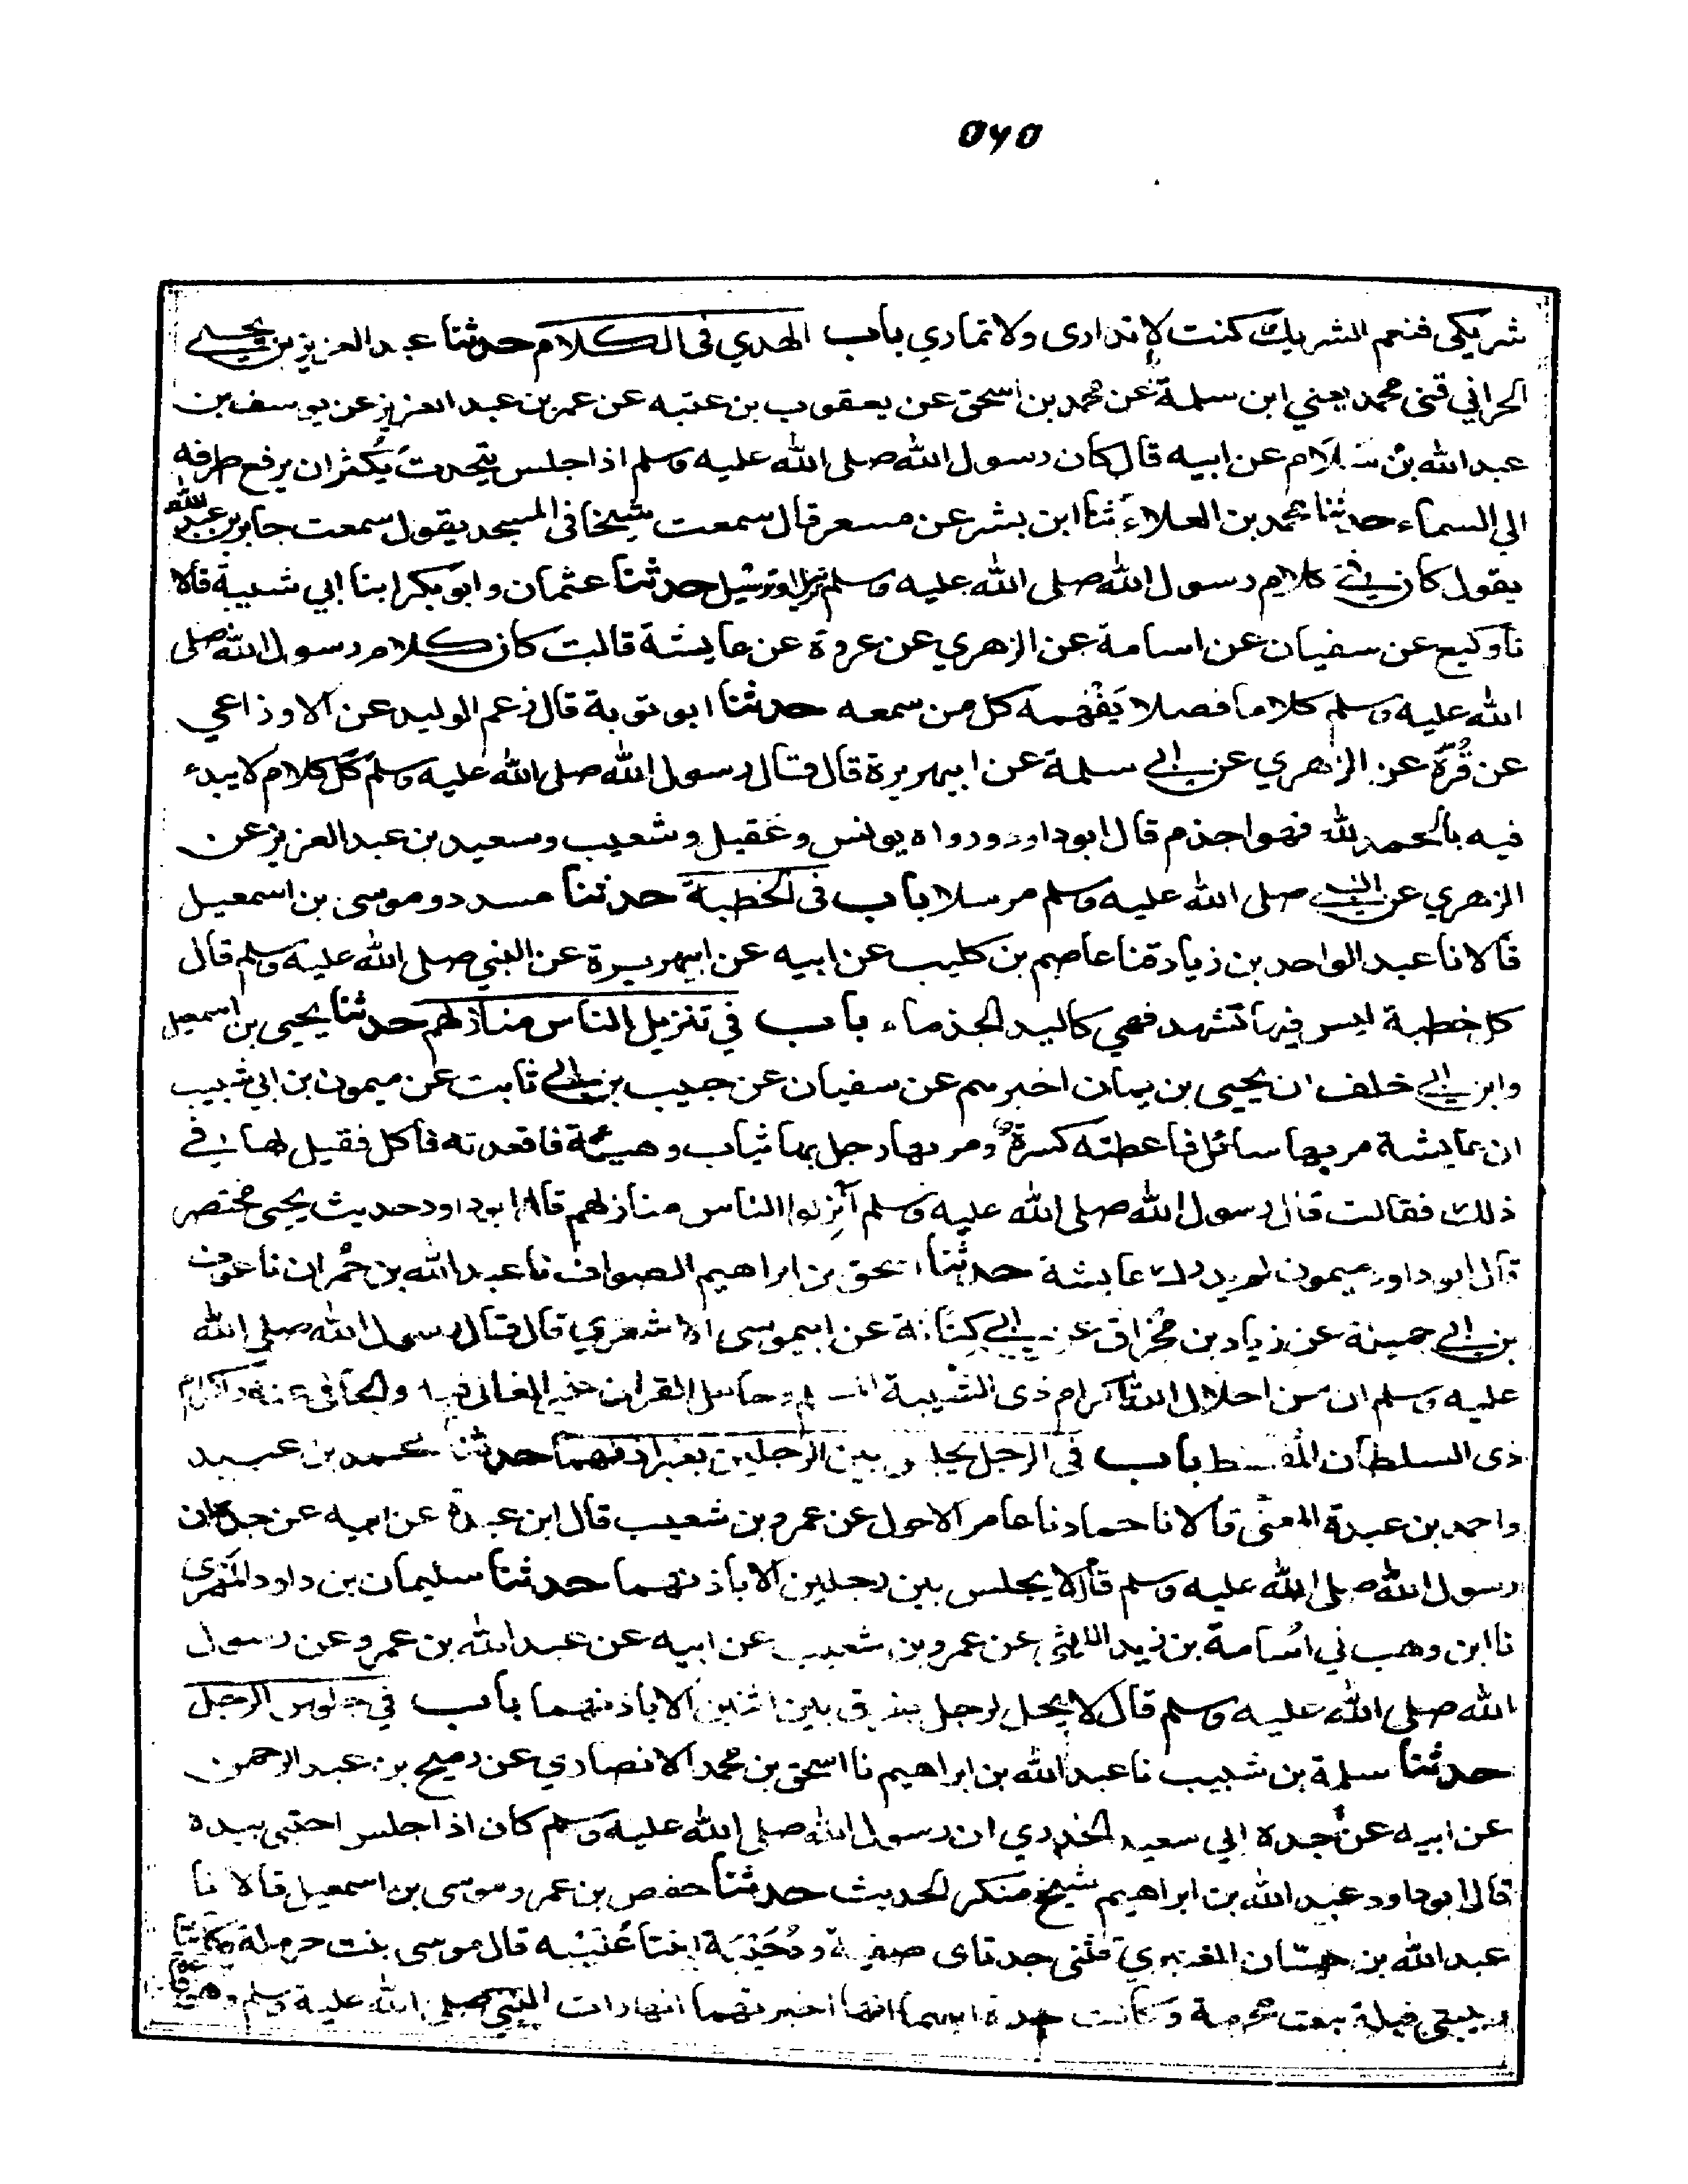 ٥٧٥
شريكى فنعم الشريك كنت لا تدارى ولا تمارى باب الهدي فى الكلام حدثنا عبد العزيز بن يحيى
الحراني قثنى محمد يعني ابن سلمة عن محمد بن اسحق عن يعقوب بن عتبه عن عمر بن عبد العزيز عن يوسف بن
عبد الله بن سَلَام عن ابيه قال كان رسول الله صلى الله عليه وسلم اذا جلس يتحدث يُكثر ان يرفع طرفه
الى السماء حدثنا محمد بن العلاء ثنا ابن بشر عن مسعر قال سمعت شيخا فى المسجد يقول سمعت جابر بن عبد الله
يقول كان في كلام رسول الله صلى الله عليه وسلم ترتيل او ترسيل حدثنا عثمان وابو بكر ابنا ابي شيبة قالا
نا وكيع عن سفيان عن اسامة عن الزهري عن عروة عن عايشة قالت كان كلام رسول الله صلى
الله عليه وسلم كلاما فصلا يَفْهمه كل من سمعه حدثنا ابو توبة قال زعم الوليد عن الاوزاعي
عن قُرّة عن الزهري عن ابي سلمة عن ابيهريرة قال قال رسول الله صلى الله عليه وسلم كل كلام لا يبدء
فيه بالحمد لله فهو اجذم قال ابو داود ورواه يونس وعقيل وشعيب وسعيد بن عبد العزيز عن
الزهري عن النبي صلى الله عليه وسلم مرسلا باب فى الخطبة حدثنا مسدد وموسى بن اسمعيل
قالا نا عبد الواحد بن زياد قثنا عاصم بن كليب عن ابيه عن ابيهريرة عن النبي صلى الله عليه وسلم قال
كل خطبة ليس فيها تشهد فهي كاليد الجذماء باب في تنزيل الناس منازلهم حدثنا يحيى بن اسمعيل
وابن ابي خلف ان يحيى بن يمان اخبرهم عن سفيان عن حبيب بن ابي ثابت عن ميمون بن ابي شبيب
ان عايشة مر بها سائل فاعطته كسرة ومر بها رجل بها ثياب وهيئة فاقعدته فاكل فقيل لها في
ذلك فقالت قال رسول الله صلى الله عليه وسلم اَنزِلوا الناس منازلهم قال ابو داود حديث يحيى مختصر
قال ابو داود ميمون لم يدرك عايشة حدثنا اسحق بن ابراهيم الصواف نا عبد الله بن حُمران نا عوف
بن ابي جميلة عن زياد بن مخراق عن ابي كِنانة عن ابيموسى الاشعري قال قال رسول الله صلى الله
عليه وسلم ان من اجلال الله اكرام ذى الشيبة المسلم وحامل القران غير الغالى فيه والجافى عنه واكرام
ذى السلطان المقسط باب فى الرجل يجلس بين الرجلين بغير اذنهما حدثنا محمد بن عبيد
واحمد بن عبدة المعنى قالا نا حماد نا عامر الاحول عن عمرو بن شعيب قال ابن عبدة عن ابيه عن جده ان
رسول الله صلى الله عليه وسلم قال لا يجلس بين رجلين الا باذنهما حدثنا سليمان بن داود المَهرى
نا ابن وهب ني اُسامة بن زيد الليثى عن عمرو بن شعيب عن ابيه عن عبد الله بن عمرو عن رسول
الله صلى الله عليه وسلم قال لا يحل لرجل يفرق بين اثنين الا باذنهما باب في جلوس الرجل
حدثنا سلمة بن شبيب نا عبد الله بن ابراهيم نا اسحق بن محمد الانصاري عن ربيح بن عبد الرحمن
عن ابيه عن جده ابي سعيد الخدري ان رسول الله صلى الله عليه وسلم كان اذا جلس احتبى بيده
قال ابو داود عبد الله بن ابراهيم شيخ منكر الحديث حدثنا حفص بن عمر وموسى بن اسمعيل قالا نا
عبد الله بن حسّان العنبري قثنى جدتاى صفية ودُحَيْبَة ابنتا عُلَيْبه قال موسى بنت حرملة وكانتا
ربيبتى قيلة بنت مخرمة وكانت جدة ابيهما انها اخبرتهما انها رات النبي صلى الله عليه وسلم وهو قاعد